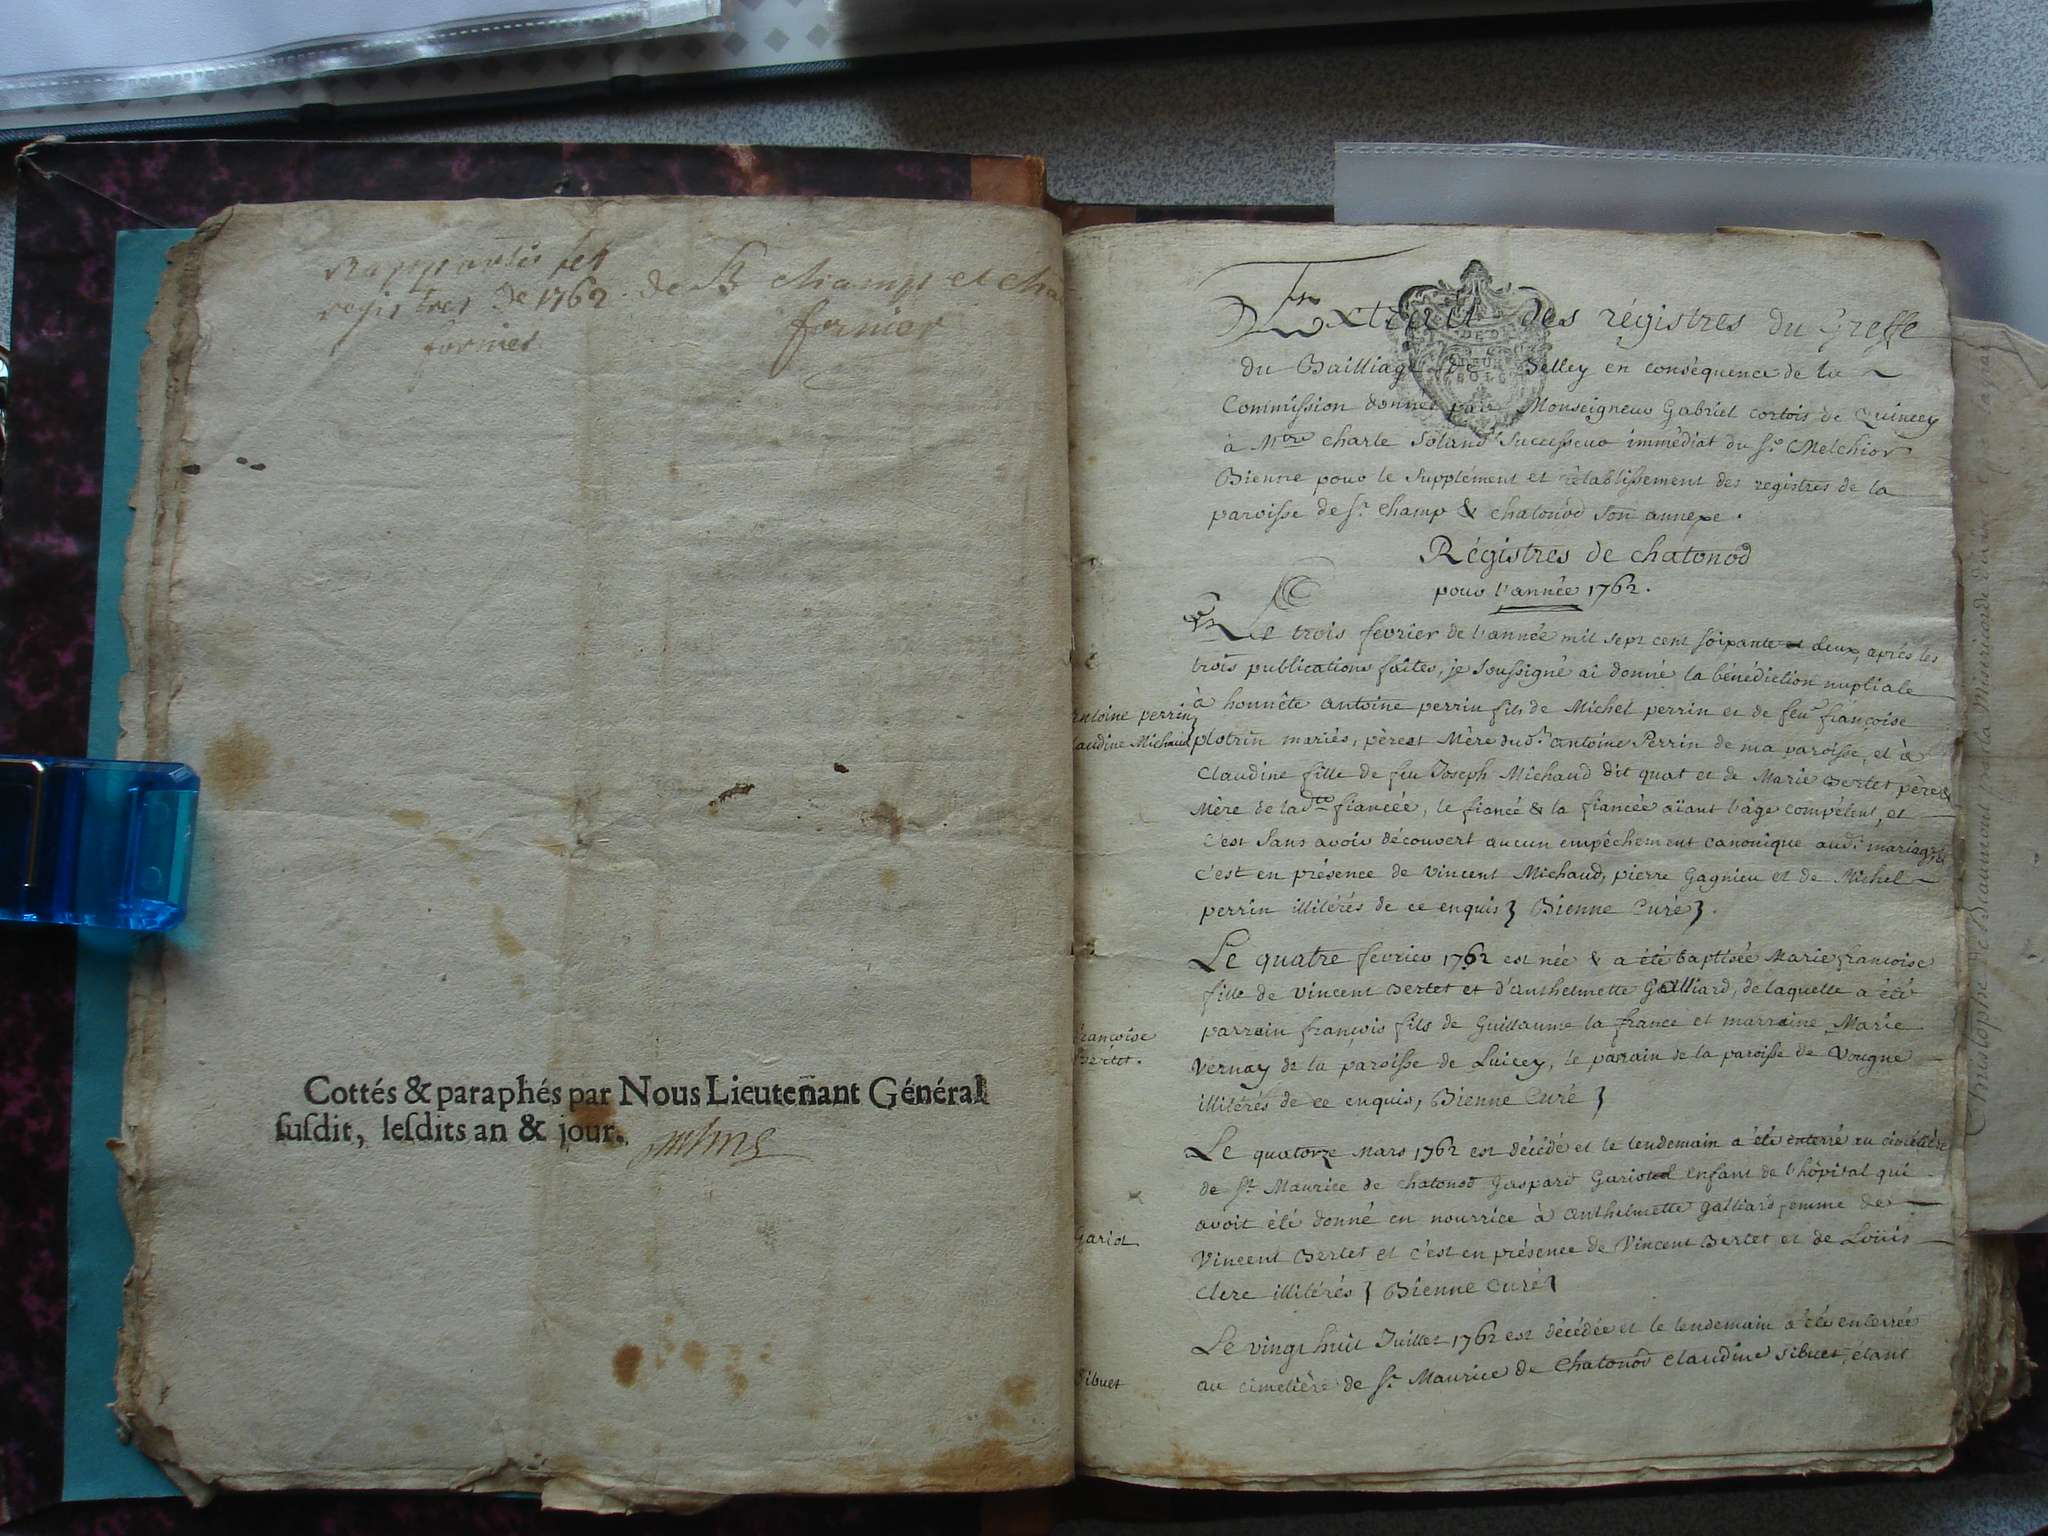 registres de 1762 de St champ et cha
fornier
Cottés & paraphés par Nous Lieuteñant Général
ſuſdit, leſdits an & jour.
Extrait des régistres du Greffe
du Bailliage de Belley en conséquence de la
Commission donneé par Monseigneur Gabriel cortois de Quincey
à Mre charle Soland Successeur immédiat du Sr Melchior
Bienne pour le Supplément et rétablissement des registres de la
paroisse de St champ & chatonod son annexe.
Régistres de chatonod
pour l'année 1762.
Le trois fevrier de l'année mil sept cent soixante et deux, aprés les
trois publications faites, je soussigné ai donné la bénédiction nuptiale
à honnête antoine perrin fils de Michel perrin et de feue françoise
antoine perrin
claudine Michaud
plotrin mariés, père et Mère dudt antoine Perrin de ma paroisse, et à
Claudine fille de feu Joseph Michaud dit quat et de Marie Bertet père &
Mère de ladte fiancée, le fiancé & la fiancée aïant l'âge compétent, et
c'est sans avoir découvert aucun empêchement canonique audt mariage, &
c'est en présence de Vincent Michaud, pierre Gagnieu et de Michel
perrin illitérés de ce enquis } Bienne Curé }.
Le quatre fevrier 1762 est née & a été baptisée Marie francoise
fille de Vincent Bertet et d'anthelmette Galliard, de laquelle a été
parrain françois fils de Guillaume la france et marraine Marie
francoise
Bertet.
Vernay de la paroisse de Luicey, le parain de la paroisse de Vougne
illitérés de ce enquis, Bienne Curé }
Le quatorze Mars 1762 est décédé et le lendemain a été enterré au cimétière
de St Maurice de chatonod Gaspard Gariod enfant de l'hôpital qui
avoit été donné en nourrice à anthelmette galliard femme de
Gariod
Vincent Bertet et c'est en présence de Vincent Bertet et de Loüis
Clerc illitérés } Bienne Curé }
Le vingt huit Juillet 1762 est décédée et le lendemain a été enterrée
Sibuet
au cimetière de St Maurice de Chatonod claudine Sibuet, étant